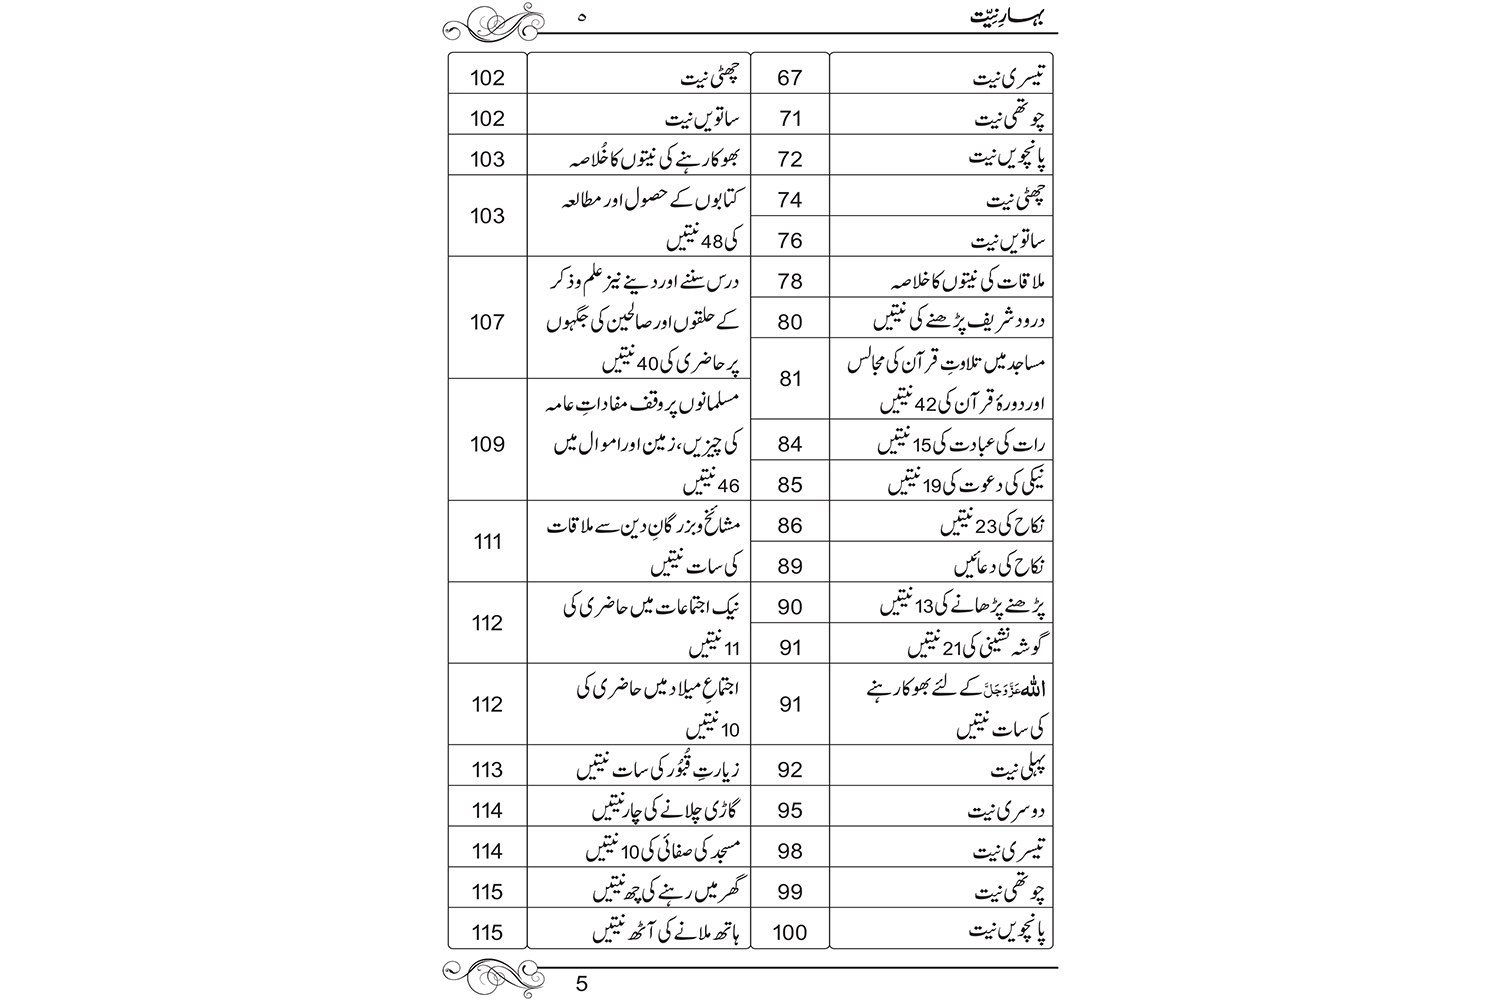 بہارِ نِیّت
۵
تیسری نیت 67
چوتھی نیت 71
پانچویں نیت 72
چھٹی نیت 74
ساتویں نیت 76
ملاقات کی نیتوں کا خلاصہ 78
درود شریف پڑھنے کی نیتیں 80
مساجد میں تلاوتِ قرآن کی مجالس
اور دورۂ قرآن کی 42 نیتیں 81
رات کی عبادت کی 15 نیتیں 84
نیکی کی دعوت کی 19 نیتیں 85
نکاح کی 23 نیتیں 86
نکاح کی دعائیں 89
پڑھنے پڑھانے کی 13 نیتیں 90
گوشہ نشینی کی 21 نیتیں 91
اللہ عَزَّوَجَلَّ کے لئے بھوکا رہنے
کی سات نیتیں 91
پہلی نیت 92
دوسری نیت 95
تیسری نیت 98
چوتھی نیت 99
پانچویں نیت 100
چھٹی نیت 102
ساتویں نیت 102
بھوکا رہنے کی نیتوں کا خُلاصہ 103
کتابوں کے حصول اور مطالعہ
کی 48 نیتیں 103
درس سننے اور دینے نیز علم و ذکر
کے حلقوں اور صالحین کی جگہوں
پر حاضری کی 40 نیتیں 107
مسلمانوں پر وقف مفاداتِ عامہ
کی چیزیں، زمین اور اموال میں
46 نیتیں 109
مشائخ و بزرگانِ دین سے ملاقات
کی سات نیتیں 111
نیک اجتماعات میں حاضری کی
11 نیتیں 112
اجتماعِ میلاد میں حاضری کی
10 نیتیں 112
زیارتِ قُبُور کی سات نیتیں 113
گاڑی چلانے کی چار نیتیں 114
مسجد کی صفائی کی 10 نیتیں 114
گھر میں رہنے کی چھ نیتیں 115
ہاتھ ملانے کی آٹھ نیتیں 115
5